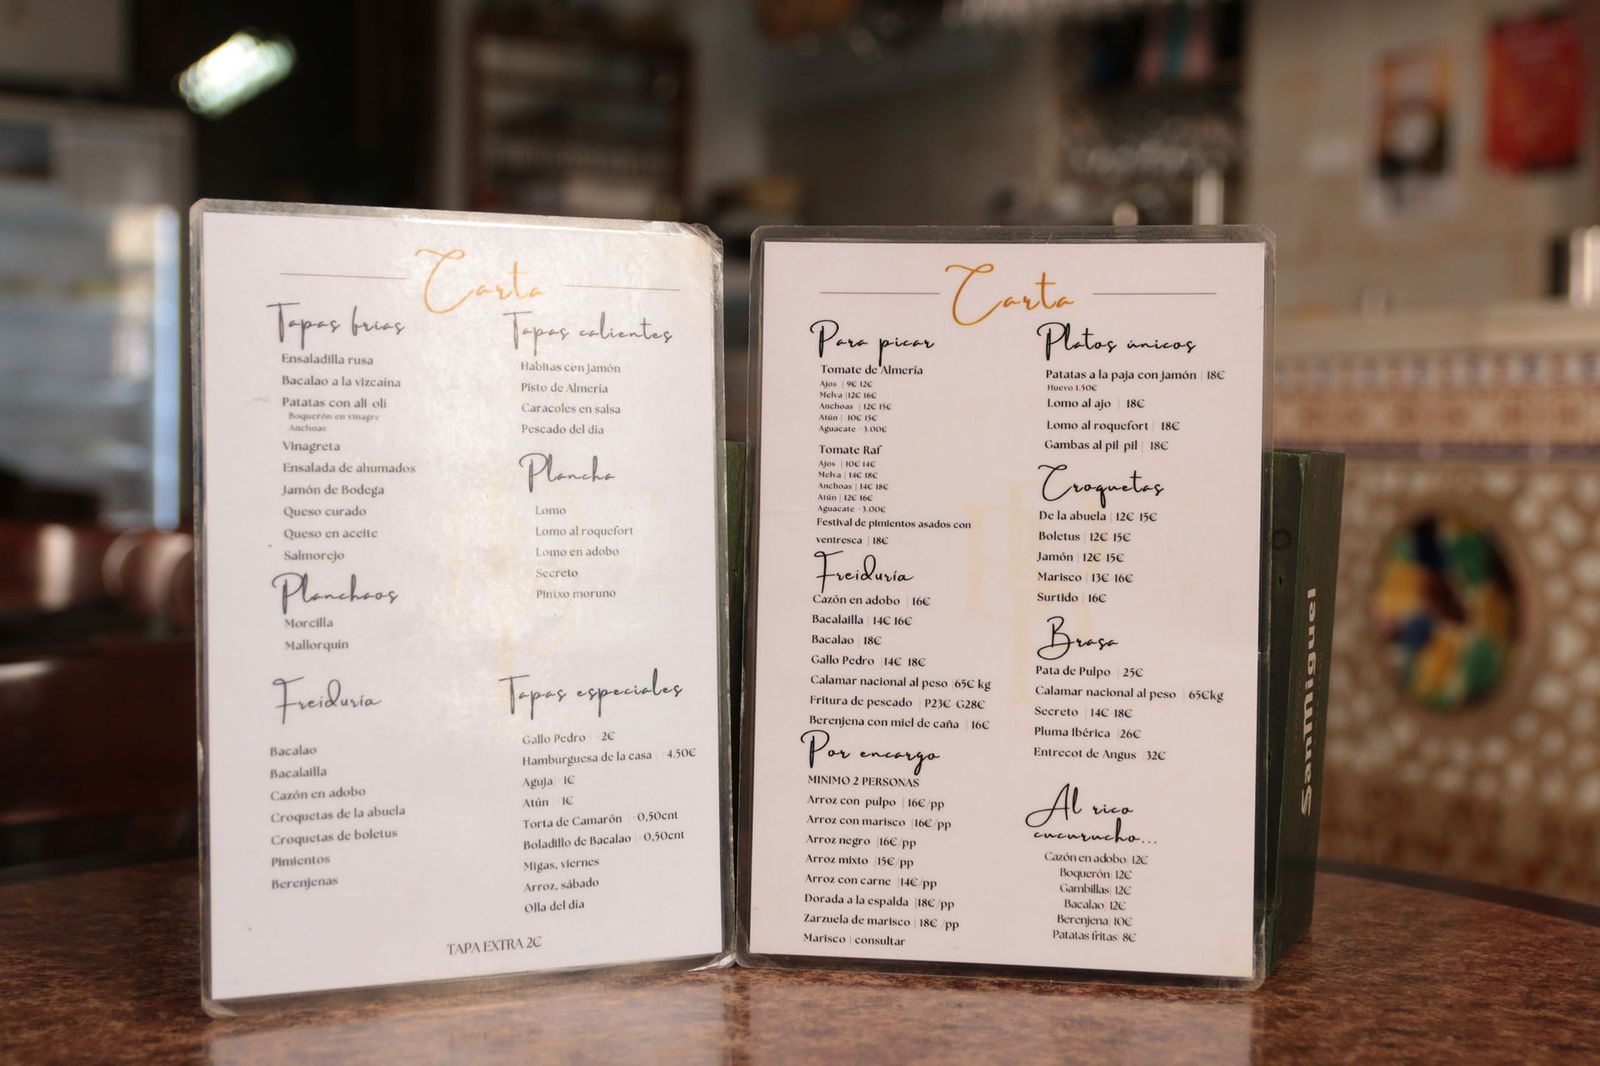 Carta
Tapas frias
Ensaladilla rusa
Bacalao a la vizcaína
Patatas con ali oli
Boquerón en vinagre
Anchoas
Vinagreta
Ensalada de ahumados
Jamón de Bodega
Queso curado
Queso en aceite
Salmorejo
Planchaos
Morcilla
Mallorquín
Freiduría
Bacalao
Bacalailla
Cazón en adobo
Croquetas de la abuela
Croquetas de boletus
Pimientos
Berenjenas
Tapas calientes
Habitas con jamón
Pisto de Almería
Caracoles en salsa
Pescado del día
Plancha
Lomo
Lomo al roquefort
Lomo en adobo
Secreto
Pintxo moruno
Tapas especiales
Gallo Pedro | +2€
Hamburguesa de la casa | +4,50€
Aguja | 1€
Atún | 1€
Torta de Camarón | +0,50cnt
Boladillo de Bacalao | +0,50cnt
Migas, viernes
Arroz, sábado
Olla del día
TAPA EXTRA 2€
Carta
Para picar
Tomate de Almería
Ajos | 9€ 12€
Melva | 12€ 16€
Anchoas | 12€ 15€
Atún | 10€ 15€
Aguacate +3.00€
Tomate Raf
Ajos | 10€ 14€
Melva | 14€ 18€
Anchoas | 14€ 18€
Atún | 12€ 16€
Aguacate +3.00€
Festival de pimientos asados con
ventresca | 18€
Freiduría
Cazón en adobo | 16€
Bacalailla | 14€ 16€
Bacalao | 18€
Gallo Pedro | 14€ 18€
Calamar nacional al peso |65€ kg
Fritura de pescado | P23€ G28€
Berenjena con miel de caña | 16€
Por encargo
MINIMO 2 PERSONAS
Arroz con pulpo | 16€/pp
Arroz con marisco | 16€/pp
Arroz negro | 16€/pp
Arroz mixto | 15€/pp
Arroz con carne | 14€/pp
Dorada a la espalda |18€/pp
Zarzuela de marisco | 18€/pp
Marisco | consultar
Platos únicos
Patatas a la paja con jamón | 18€
Huevo 1.50€
Lomo al ajo | 18€
Lomo al roquefort | 18€
Gambas al pil pil | 18€
Croquetas
De la abuela | 12€ 15€
Boletus | 12€ 15€
Jamón | 12€ 15€
Marisco | 13€ 16€
Surtido | 16€
Brasa
Pata de Pulpo | 25€
Calamar nacional al peso | 65€kg
Secreto | 14€ 18€
Pluma Ibérica | 26€
Entrecot de Angus | 32€
Al rico
cucurucho...
Cazón en adobo 12€
Boquerón 12€
Gambillas 12€
Bacalao 12€
Berenjena 10€
Patatas fritas 8€
SanMiguel